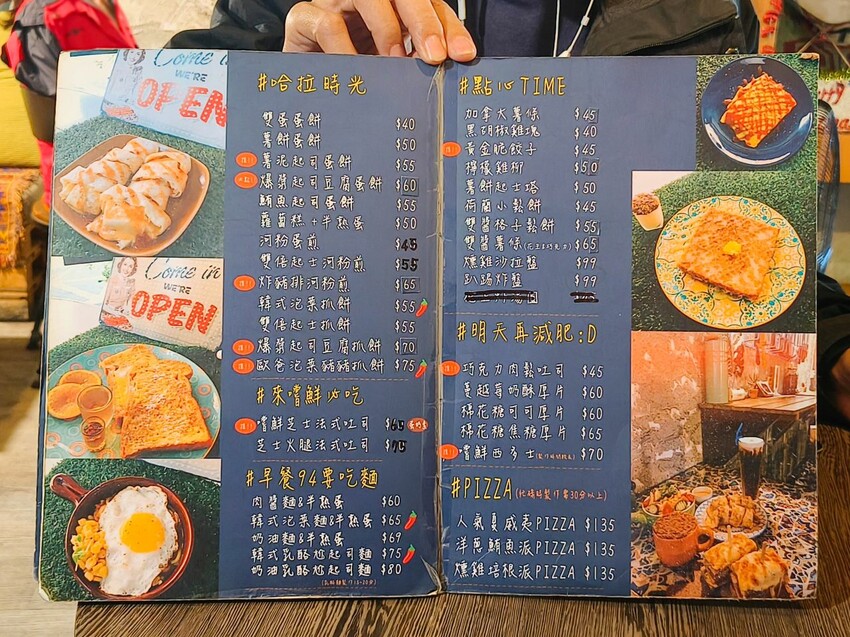 Come in
WE'RE
OPEN
Come in
WE'RE
OPEN
#哈拉時光
雙蛋蛋餅 $40
薯餅蛋餅 $50
薯泥起司蛋餅 $55
爆漿起司豆腐蛋餅 $60
鮪魚起司蛋餅 $55
蘿蔔糕+半熟蛋 $50
河粉蛋煎 $45
雙倍起士河粉煎 $55
炸豬排河粉煎 $65
韓式泡菜抓餅 $55
雙倍起士抓餅 $55
爆漿起司豆腐抓餅 $70
歐爸泡菜豬豬抓餅 $75
#來嚐鮮必吃
嚐鮮芝士法式吐司
芝士火腿法式吐司 $75
#早餐94要吃麵
肉醬麵&半熟蛋 $60
韓式泡菜麵&半熟蛋 $65
奶油麵&半熟蛋 $69
韓式乳酪尬起司麵 $75
奶油乳酪尬起司麵 $80
#點心TIME
加拿大薯條 $45
黑胡椒雞塊 $40
黃金脆餃子 $45
檸檬雞柳 $50
薯餅起士塔 $50
荷蘭小鬆餅 $45
雙醬格子鬆餅 $55
雙醬薯條 $65
燻雞沙拉盤 $99
趴踢炸盤 $99
#明天再減肥:D
巧克力肉鬆吐司 $45
蔓越莓奶酥厚片 $60
棉花糖可可厚片 $60
棉花糖焦糖厚片 $65
嚐鮮西多士 $70
#PIZZA(此餐時製作需30分以上)
人氣夏威夷PIZZA $135
洋蔥鮪魚派PIZZA $135
燻雞培根派PIZZA $135